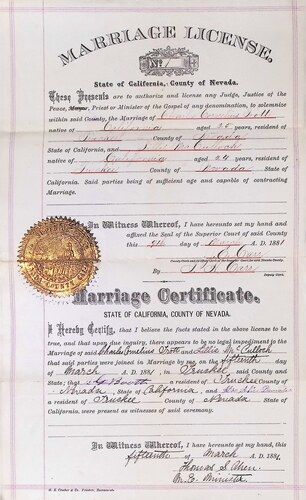 MARRIAGE LICENSE,
No. 1
State of California, County of Nevada.
These Presents are to authorize and license any Judge, Justice of the
Peace, Mayor, Priest or Minister of the Gospel of any denomination, to solemnize
within said County, the Marriage of Charles Cornelius
native of California aged resident of
County of Nevada
State of California, and McCulloch
native of California aged 24 years, resident of
Truckee County of Nevada
State of California. Said parties being of sufficient age and capable of contracting
Marriage.
In Witness Whereof, I have hereunto set my hand and
affixed the Seal of the Superior Court of said County
this 9th day of A. D. 1881
By Deputy Clerk.
Marriage Certificate.
STATE OF CALIFORNIA, COUNTY OF NEVADA.
I Hereby Certify, that I believe the facts stated in the above license to be
true, and that upon due inquiry, there appears to be no legal impediment to the
Marriage of said Charles Cornelius and Lillie McCulloch
that said parties were joined in Marriage by me, on the fifteenth day
of March A. D. 1881, in Truckee, said County and
State; that Booth a resident of Truckee
Nevada, State of California, and Mrs.
a resident of Truckee County of Nevada
California, were present as witnesses of said ceremony.
In Witness Whereof, I have hereunto set my hand, this
fifteenth of March A. D. 1881.
Thomas S.
M. G. Minister